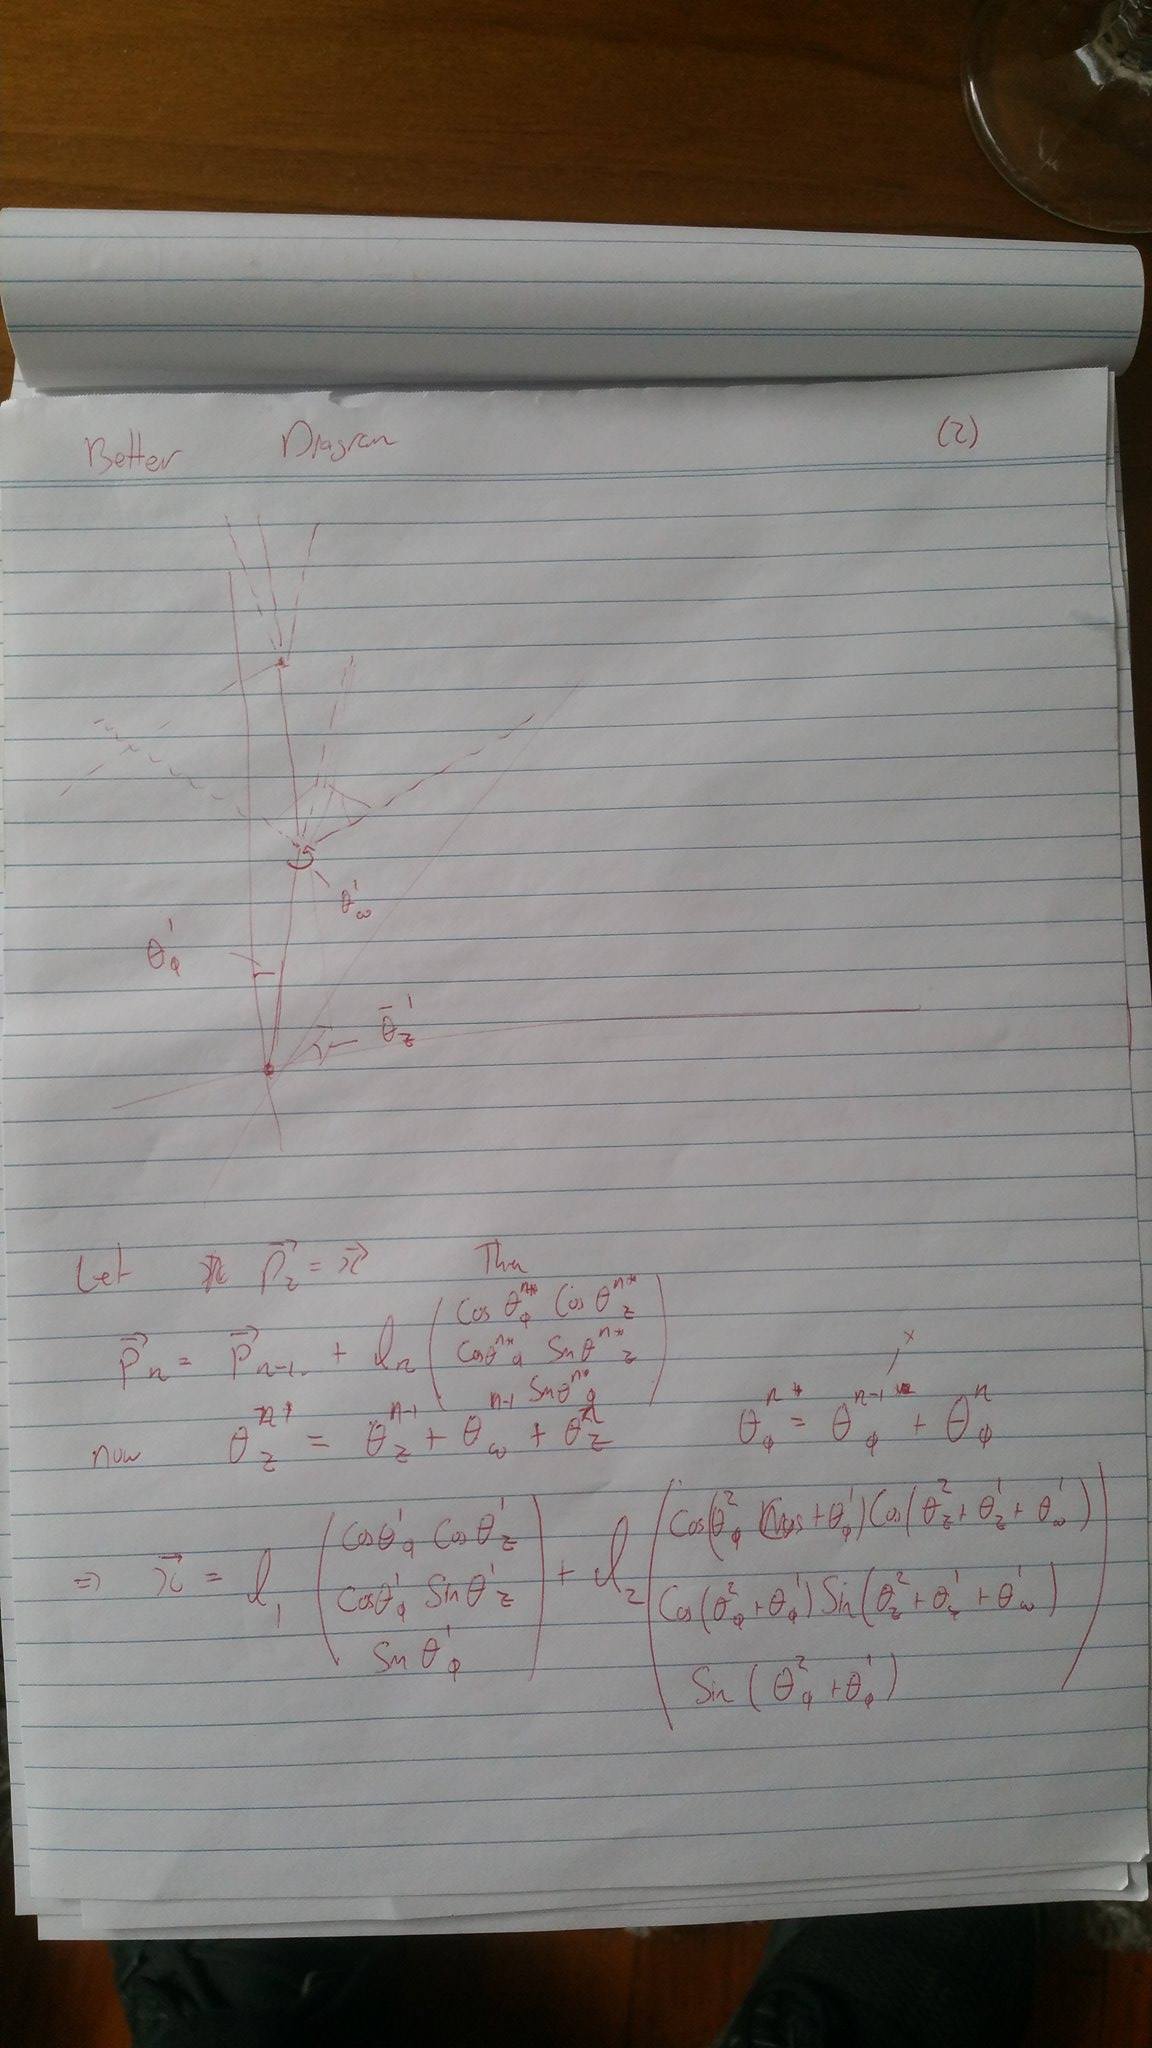 Better Diagram (2)
θ_ω^1
θ_φ^1
θ̄_z^1
Let p⃗_2 = x⃗ Then
p⃗_n = p⃗_{n-1} + l_n ( Cos θ_φ^{n*} Cos θ_z^{n*}
Cos θ_φ^{n*} Sin θ_z^{n*}
Sin θ_φ^{n*} )
now θ_z^{n*} = θ_z^{n-1} + θ_ω^{n-1} + θ_z^n θ_φ^{n*} = θ_φ^{n-1} + θ_φ^n
⇒ x⃗ = l_1 ( Cos θ_φ^1 Cos θ_z^1
Cos θ_φ^1 Sin θ_z^1
Sin θ_φ^1 ) + l_2 ( Cos(θ_φ^2 + θ_φ^1) Cos(θ_z^2 + θ_z^1 + θ_ω^1)
Cos(θ_φ^2 + θ_φ^1) Sin(θ_z^2 + θ_z^1 + θ_ω^1)
Sin(θ_φ^2 + θ_φ^1) )